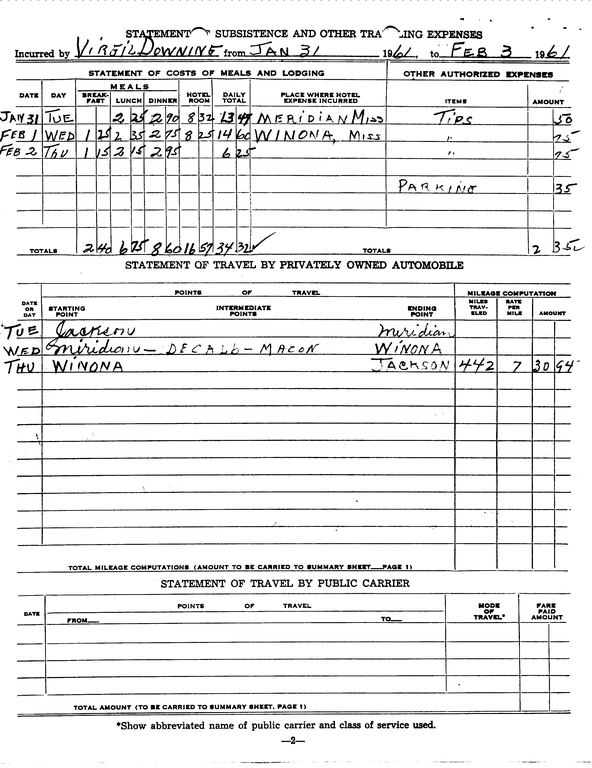 STATEMENT SUBSISTENCE AND OTHER TRA LING EXPENSES
Incurred by Virgil Downing from JAN 31 1961, to FEB 3 1961
STATEMENT OF COSTS OF MEALS AND LODGING OTHER AUTHORIZED EXPENSES
DATE DAY MEALS BREAK-FAST LUNCH DINNER HOTEL ROOM DAILY TOTAL PLACE WHERE HOTEL EXPENSE INCURRED ITEMS AMOUNT
JAN 31 TUE 2 25 2 90 8 32 13 47 MERIDIAN Miss Tips 50
FEB 1 WED 1 25 2 35 2 75 8 25 14 60 WINONA, Miss " 75
FEB 2 Thu 1 15 2 15 2 95 6 25 " 75
PARKING 35
TOTALS 2 40 6 75 8 60 16 57 34 32 TOTALS 2 35
STATEMENT OF TRAVEL BY PRIVATELY OWNED AUTOMOBILE
DATE OR DAY POINTS OF TRAVEL MILEAGE COMPUTATION
STARTING POINT INTERMEDIATE POINTS ENDING POINT MILES TRAV-ELED RATE PER MILE AMOUNT
TUE Jackson Meridian
WED Miridian - DECALb - MACON WINONA
THU WINONA JACKSON 442 7 30 94
TOTAL MILEAGE COMPUTATIONS (AMOUNT TO BE CARRIED TO SUMMARY SHEET PAGE 1)
STATEMENT OF TRAVEL BY PUBLIC CARRIER
DATE POINTS OF TRAVEL MODE OF TRAVEL* FARE PAID AMOUNT
FROM TO
TOTAL AMOUNT (TO BE CARRIED TO SUMMARY SHEET, PAGE 1)
*Show abbreviated name of public carrier and class of service used.
—2—